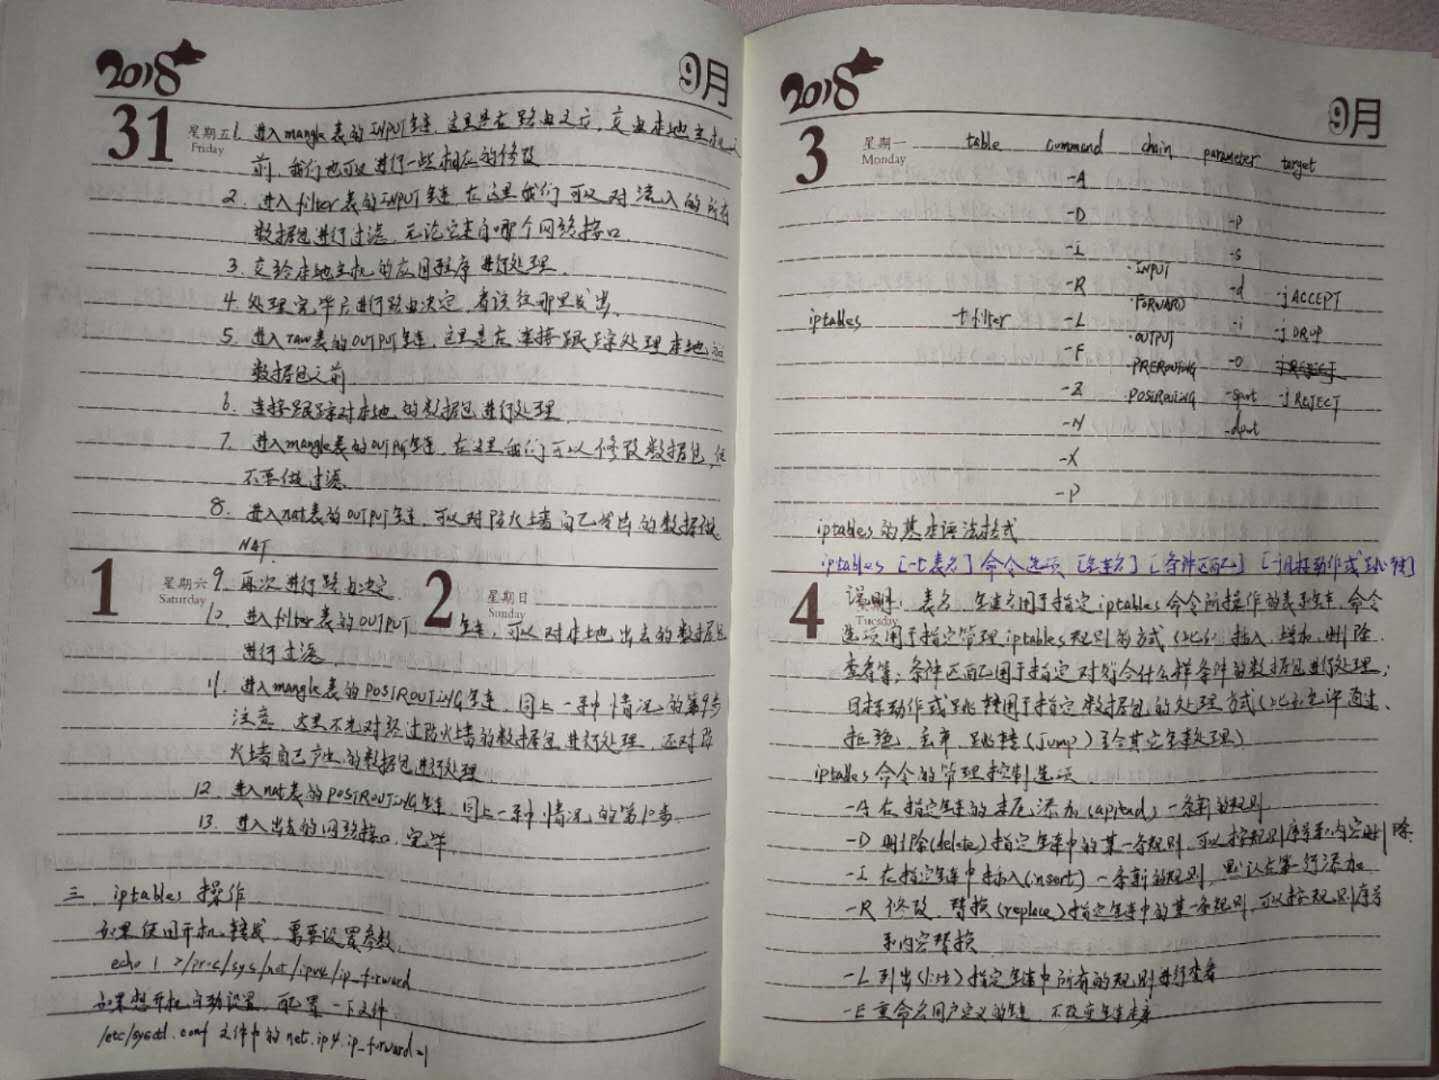 2018
9月
31 星期五 Friday
1. 进入mangle表的INPUT链，这里是在路由之后，交由本地主机之
前，我们也可以进行一些相应的修改
2. 进入filter表的INPUT链，在这里我们可以对流入的所有
数据包进行过滤，无论它来自哪个网络接口.
3. 交给本地主机的应用程序进行处理.
4. 处理完毕后进行路由决定，看该往那里发出.
5. 进入raw表的OUTPUT链，这里是在连接跟踪处理本地的
数据包之前
6. 连接跟踪对本地的数据包进行处理
7. 进入mangle表的OUTPUT链，在这里我们可以修改数据包，但
不要做过滤
8. 进入nat表的OUTPUT链，可以对防火墙自己发出的数据做
NAT.
1 星期六 Saturday
2 星期日 Sunday
9. 再次进行路由决定.
10. 进入filter表的OUTPUT链，可以对本地出去的数据包
进行过滤.
11. 进入mangle表的POSTROUTING链，同上一种情况的第9步
注意，这里不光对经过防火墙的数据包进行处理，还对防
火墙自己产生的数据包进行处理
12. 进入nat表的POSTROUTING链，同上一种情况的第10步.
13. 进入出去的网络接口，完毕.
三 iptables 操作
如果使用开机转发，需要设置参数，
echo 1 >/proc/sys/net/ipv4/ip_forward
如果想开机自动设置，配置一下文件
/etc/sysctl.conf 文件中的 net.ip4.ip_forward=1
2018
9月
3 星期一 Monday
table command chain parameter target
-A
-D -p
-I -s
·INPUT
-R -d -j ACCEPT
·FORWARD
iptables -t filter -L -i -j DROP
·OUTPUT
-F -o -j REJECT
·PREROUTING
-Z ·POSTROUTING -sport -j REJECT
-N -dport
-X
-P
iptables的基本语法格式
iptables [-t表名] 命令选项 [链名] [条件匹配] [-j目标动作或跳转]
4 Tuesday
说明：表名、链名用于指定iptables命令所操作的表和链，命令
选项用于指定管理iptables规则的方式（比如：插入、增加、删除、
查看等；条件匹配用于指定对符合什么样条件的数据包进行处理；
目标动作或跳转用于指定数据包的处理方式（比如允许通过、
拒绝、丢弃、跳转（Jump）给其它链处理）
iptables命令的管理控制选项
-A 在指定链的末尾添加（append）一条新的规则
-D 删除（delete）指定链中的某一条规则，可以按规则序号和内容删除
-I 在指定链中插入（insert）一条新的规则，默认在第一行添加
-R 修改、替换（replace）指定链中的某一条规则，可以按规则序号
和内容替换
-L 列出（list）指定链中所有的规则进行查看
-E 重命名用户定义的链，不改变链本身